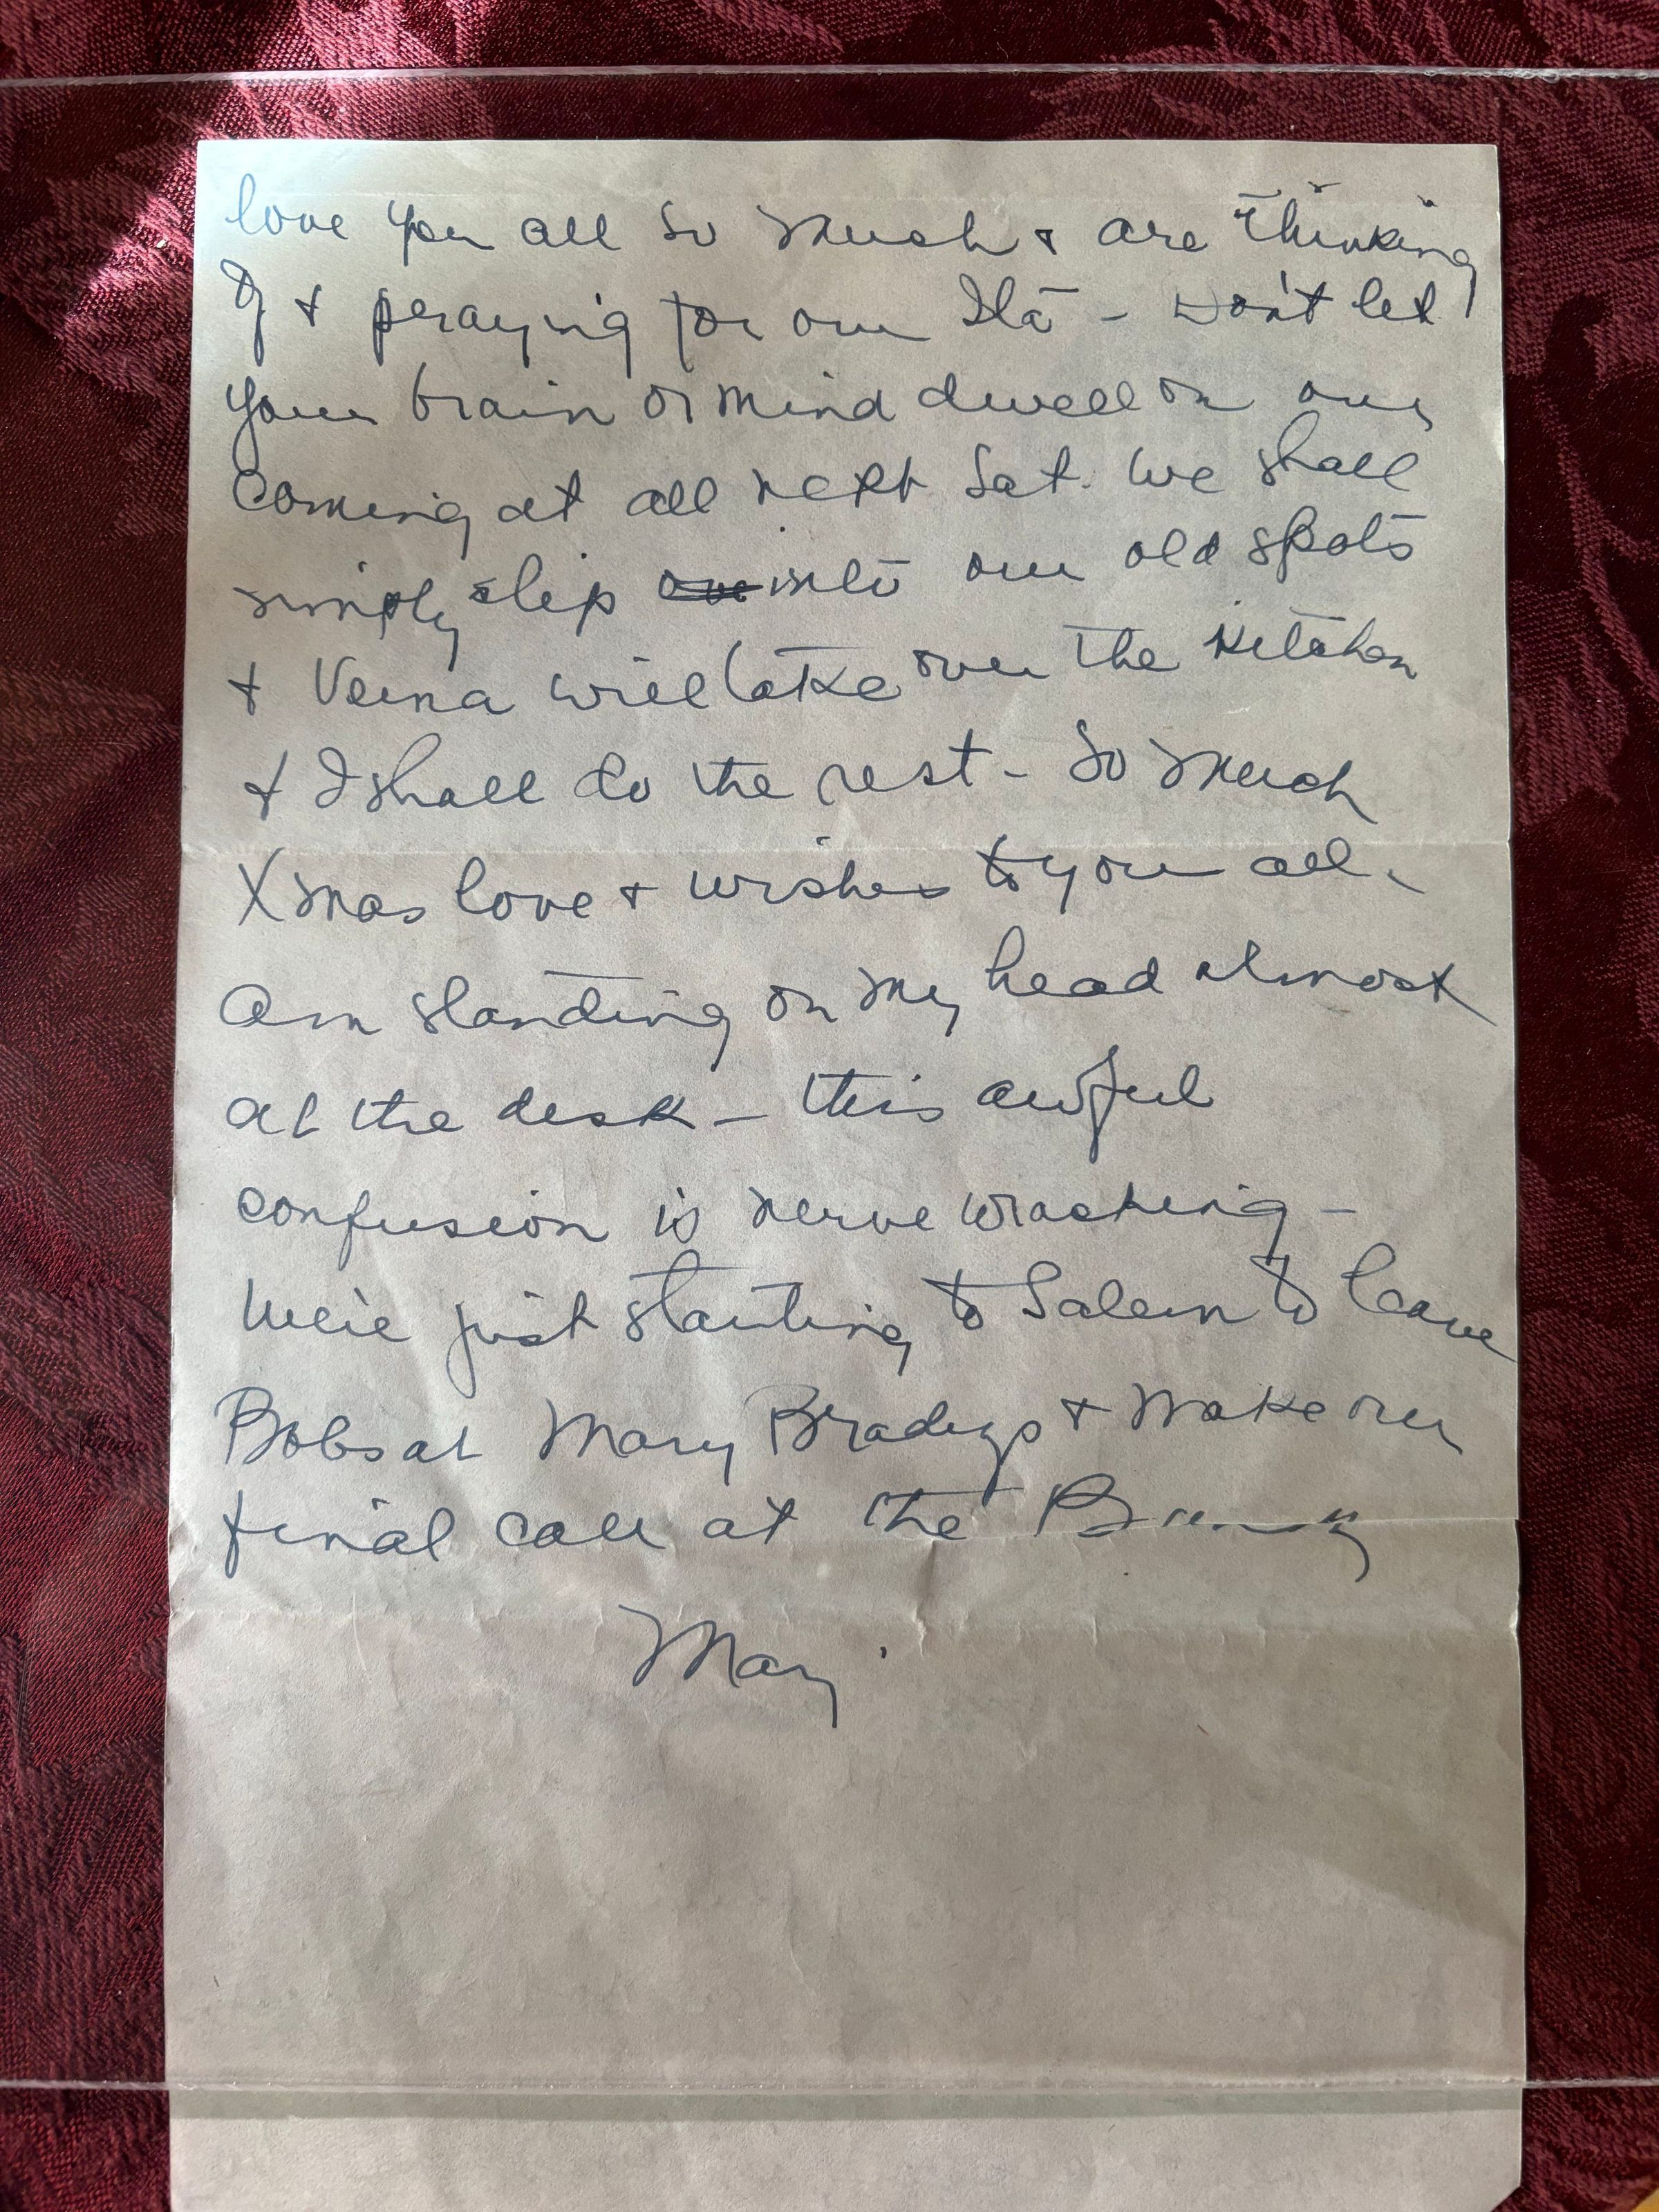 love you all so much + are thinking
of + praying for our Ita - Don't let
your brain or mind dwell on our
coming at all next Sat. We shall
simply slip into our old spots
+ Verna will take over the kitchen
+ I shall do the rest - So much
Xmas love + wishes to you all -
am standing on my head almost
at the desk - this awful
confusion is nerve wracking -
We're just starting to Salem to leave
Bobs at Mary Bradeys + make our
final call at the
Mary